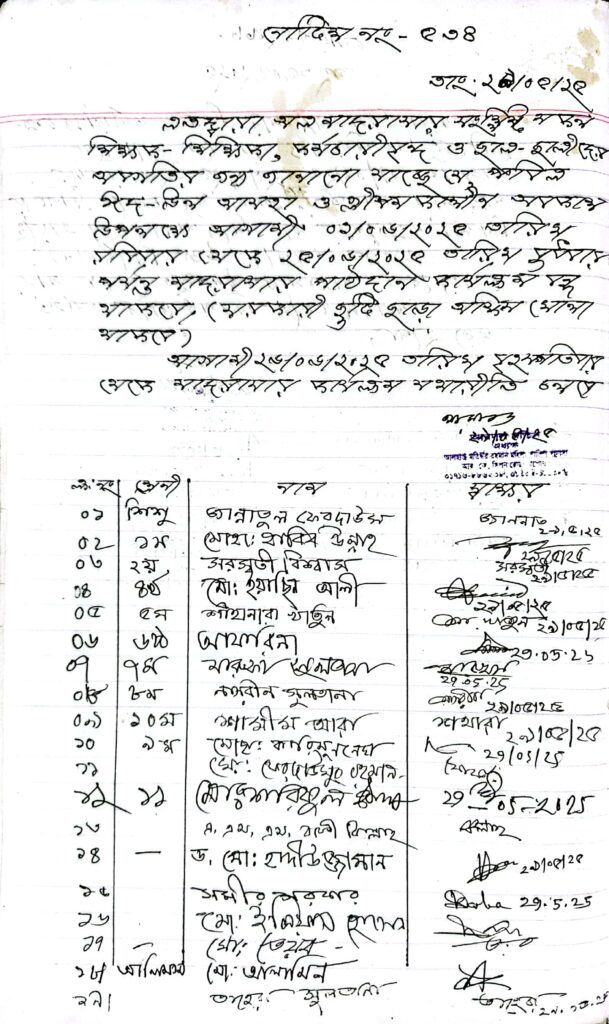 নোটিশ নং - ৫৩৪
তাং: ২৯/০৫/২৫
এতদ্বারা অত্র মাদরাসার সংশ্লিষ্ট সকল
শিক্ষক-শিক্ষিকা, কর্মচারীবৃন্দ ও ছাত্র-ছাত্রীদের
অবগতির জন্য জানানো যাচ্ছে যে, পবিত্র
ঈদ-উল আযহা ও গ্রীষ্মকালীন অবকাশ
উপলক্ষ্যে আগামী ০১/০৬/২০২৫ তারিখ
রবিবার থেকে ২৫/০৬/২০২৫ তারিখ বুধবার
পর্যন্ত মাদরাসার পাঠদান কার্যক্রম বন্ধ
থাকবে, (সরকারী ছুটি ছাড়া অফিস খোলা
থাকবে)
আগামী ২৬/০৬/২০২৫ তারিখ বৃহস্পতিবার
থেকে মাদরাসার কার্যক্রম যথারীতি চলবে
অধ্যক্ষ
ক্রঃ নং শ্রেণী নাম স্বাক্ষর
০১ শিশু জান্নাতুল ফেরদাউস জান্নাত ২৯.৫.২৫
০২ ১ম মোহাঃ হাবিব উল্লাহ ২৯/৫/২৫
০৩ ২য় সরস্বতী বিশ্বাস সরস্বতী ২৯/০৫/২৫
০৪ ৪র্থ মো: ইয়াছিন আলী ২৯/০৫/২৫
০৫ ৫ম শাহানারা খাতুন খাতুন ২৯/০৫/২৫
০৬ ৬ষ্ঠ আফরিনা 29.05.25
০৭ ৭ম 29.05.25
০৮ ৮ম নাসরীন সুলতানা ২৯/০৫/২৫
০৯ ১০ম শামীম আরা শামীআরা ২৯/০৫/২৫
১০ ৯ম মোছা: কারিমুননেছা 29/05/25
১১ মো: ফেরদাউসুর রহমান
১২ ১১ মোঃ শরিফুল ইসলাম 29-05-2025
১৩ এ, এম, এম,
১৪ — ড. মো: হাদীউজ্জামান ২৯/০৫/২৫
১৫ সমীর সরকার 29.5.25
১৬ মো: ইলিয়াস হোসেন
১৭ মো:
১৮ আলিম মো: আলামিন
১৯। তাহেরা সুলতানা তাহেরা ২৯.০৫.২৫